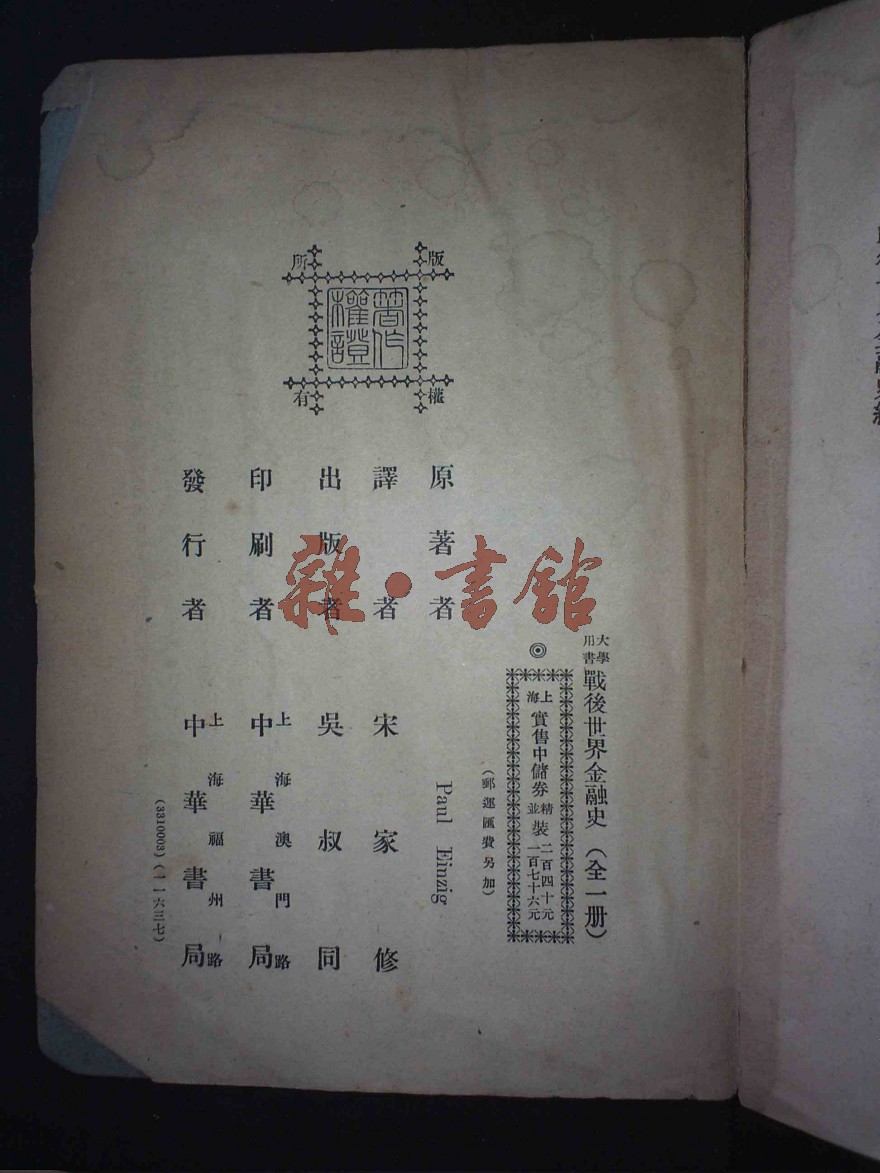 大學用書 戰後世界金融史（全一册）
◎
上海 實售中儲券 精並裝 二百四十元 一百七十六元
（郵運匯費另加）
原著者 Paul Einzig
譯者 宋家修
出版者 吳叔同
印刷者 上海澳門路 中華書局
發行者 上海福州路 中華書局
（3310003）（一一六三七）
版權所有
著作權證
雜·書館